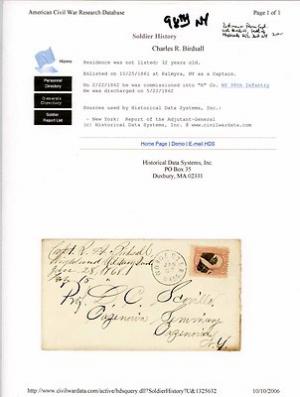 American Civil War Research Database
98th NY
Page 1 of 1
Soldier History
Charles R. Birdsall
Home
Personal Directory
Generals Directory
Soldier Report List
Residence was not listed; 32 years old.
Enlisted on 10/25/1861 at Palmyra, NY as a Captain.
On 2/22/1862 he was commissioned into "H" Co. NY 98th Infantry
He was discharged on 5/22/1862
Sources used by Historical Data Systems, Inc.:
- New York: Report of the Adjutant-General
(c) Historical Data Systems, Inc. @ www.civilwardata.com
Home Page | Demo | E-mail HDS
Historical Data Systems, Inc.
PO Box 35
Duxbury, MA 02331
Prof. L. C.
Cazenovia Seminary
Cazenovia
N.Y.
http://www.civilwardata.com/active/hdsquery.dll?SoldierHistory?U&1325632
10/10/2006